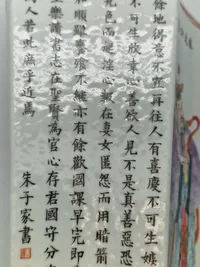 餘地得意不宜再往人有喜慶不可生嫉
不可生欣幸心善欲人見不是真善惡恐
見色而起淫心報在妻女匿怨而用暗箭
順雖饔飧不繼亦有餘歡國課早完即
至樂讀書志在聖賢為官心存君國守分
人若此庶乎近焉
朱子家書